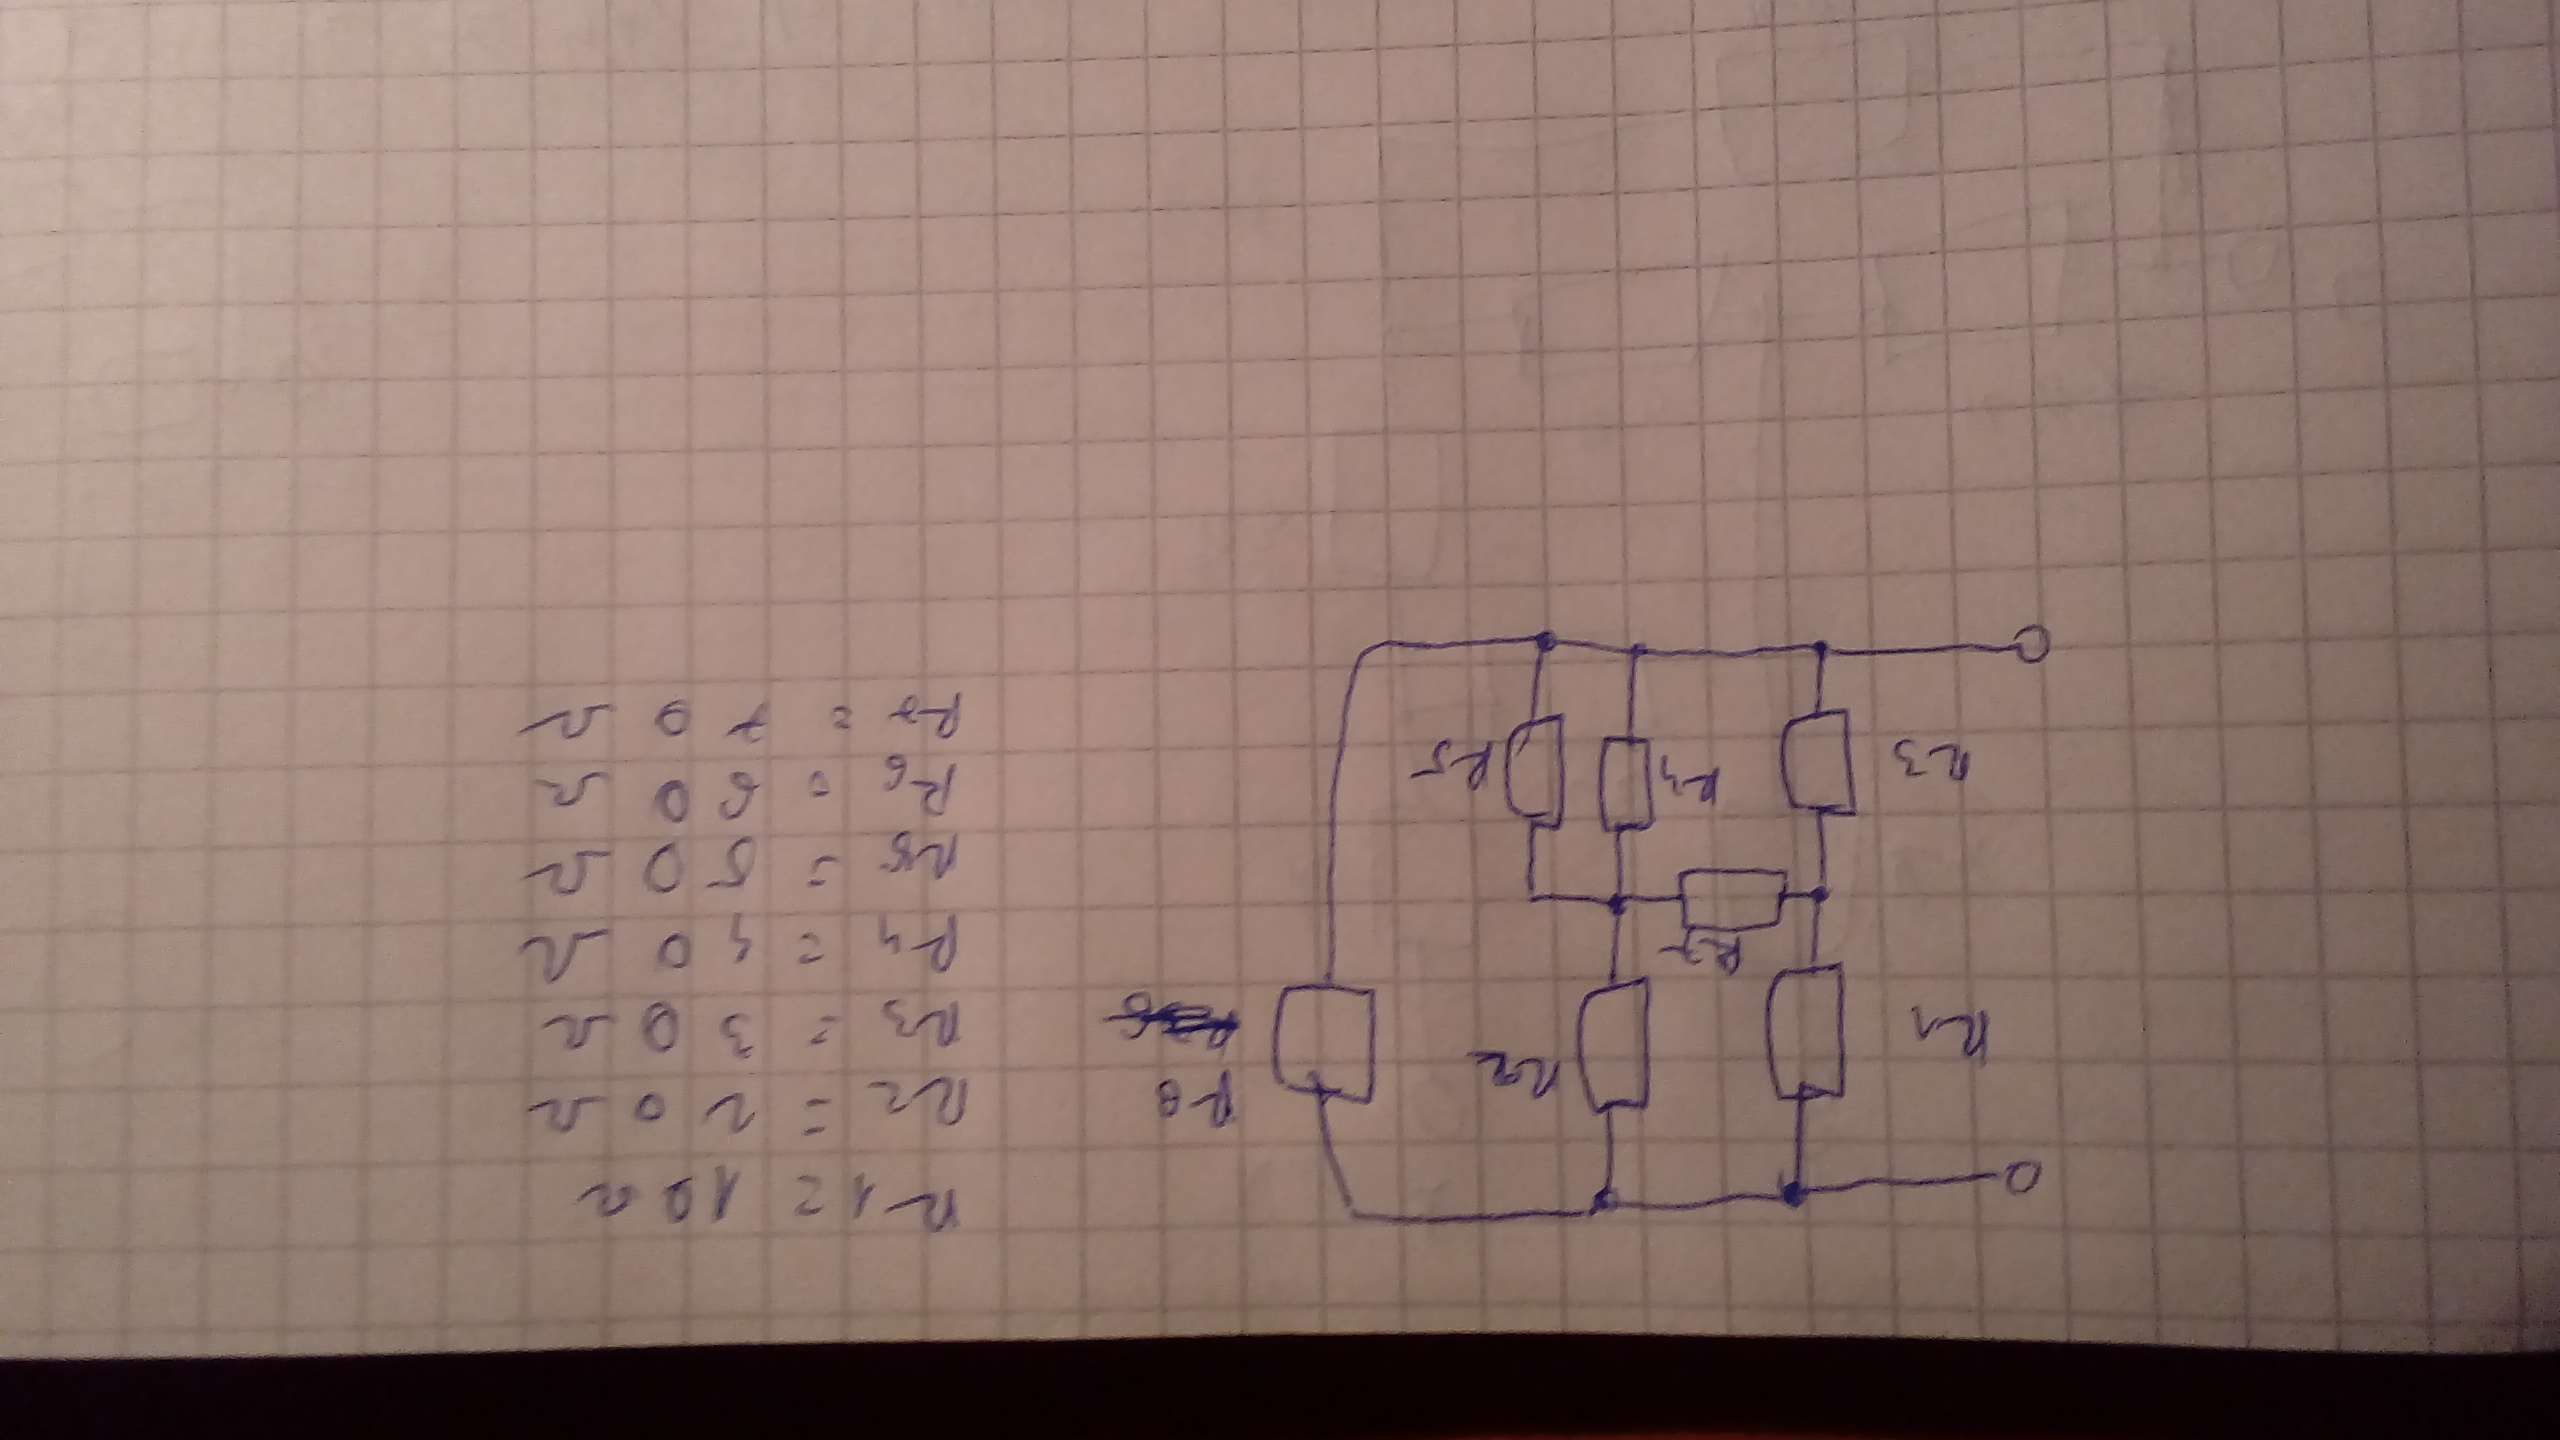 R1
R2
R8
R7
R3
R4
R5
R1 = 10 Ω
R2 = 20 Ω
R3 = 30 Ω
R4 = 40 Ω
R5 = 50 Ω
R6 = 60 Ω
R7 = 70 Ω